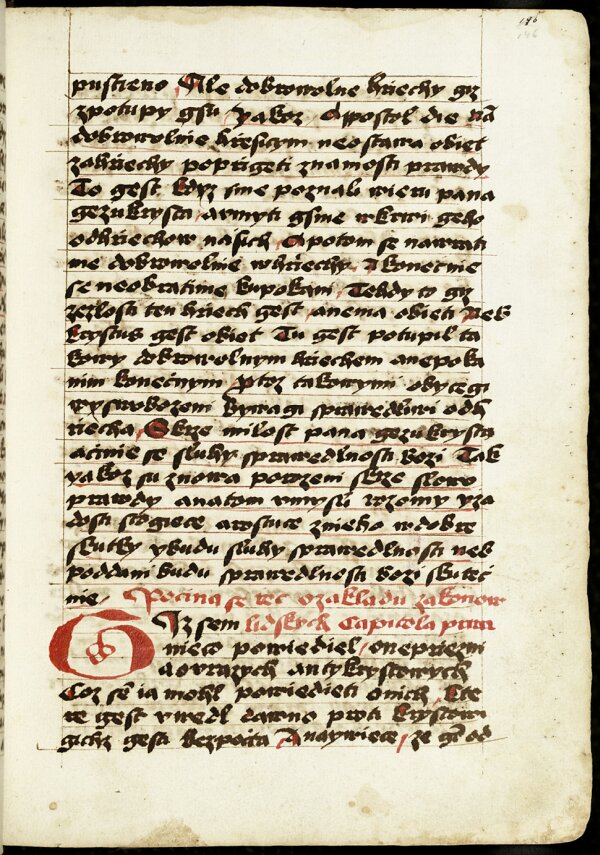 146
146
pusstieno Ale dobrowolne hriechy gz
zpotupy gsu yakoz Apostol die nā
dobrowolnie hresicym neostawa obiet
zahriechy poprigeti znamosti prawdy
To gest kdyz sme poznali wieru pana
gezukrysta amyti gsme wkrwi geho
odhriechow nasich A potom se nawrati
me dobrowolnie whriechy A konecnie
se neobratime kupokani Tehdy to gz
zezlosti ten hriech gest anema obieti neb
krystus gest obiet Tu gest potupil ta
kowy dobrowolnym hriechem anepoka
nim konecnym Protoz takowymi obycegi
wyswobozeni bywagi sprawedliwi odh
riecha Skrze milost pana gezukrysta
acinie se sluhy sprawedlnosti bozi Tak
yakoz su znowa porozeni skrze slowo
prawdy anatom umysu rozomy yza
dosti stogiece arostuce znieho wdobre
skutky ybudu sluhy sprawedlnosti neb
poddani budu sprawedlnosti bozi skutec
nie Pocina se rec ozakladu zakonow
Giz sem lidskych Capitola prwa
nieco powiediel onepriezni
aowrazych antykrystowych
Coz sem ia mohl powiedieti onich kte
re gest uwedl dawno proti krystowi
gichz gest bezpocta A naywiece ze gt od